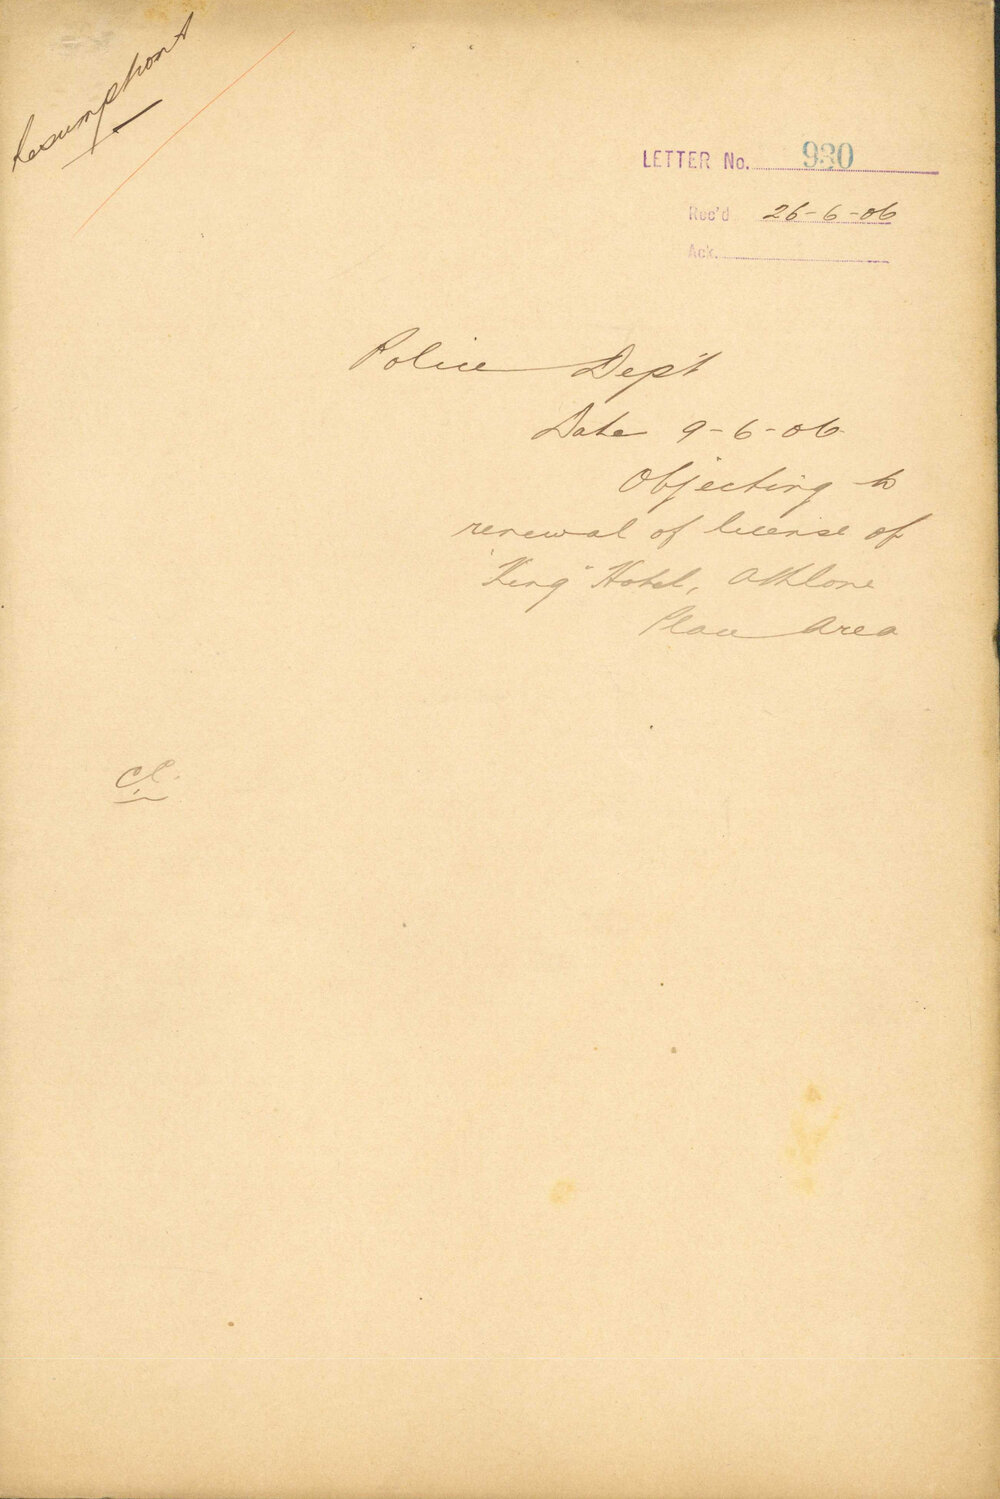 Resumptions
LETTER No. 930
Rec'd 26-6-06
Ack.
Police Dep't
Date 9-6-06
Objecting to
renewal of license of
"King" Hotel, Athlone
Place Area